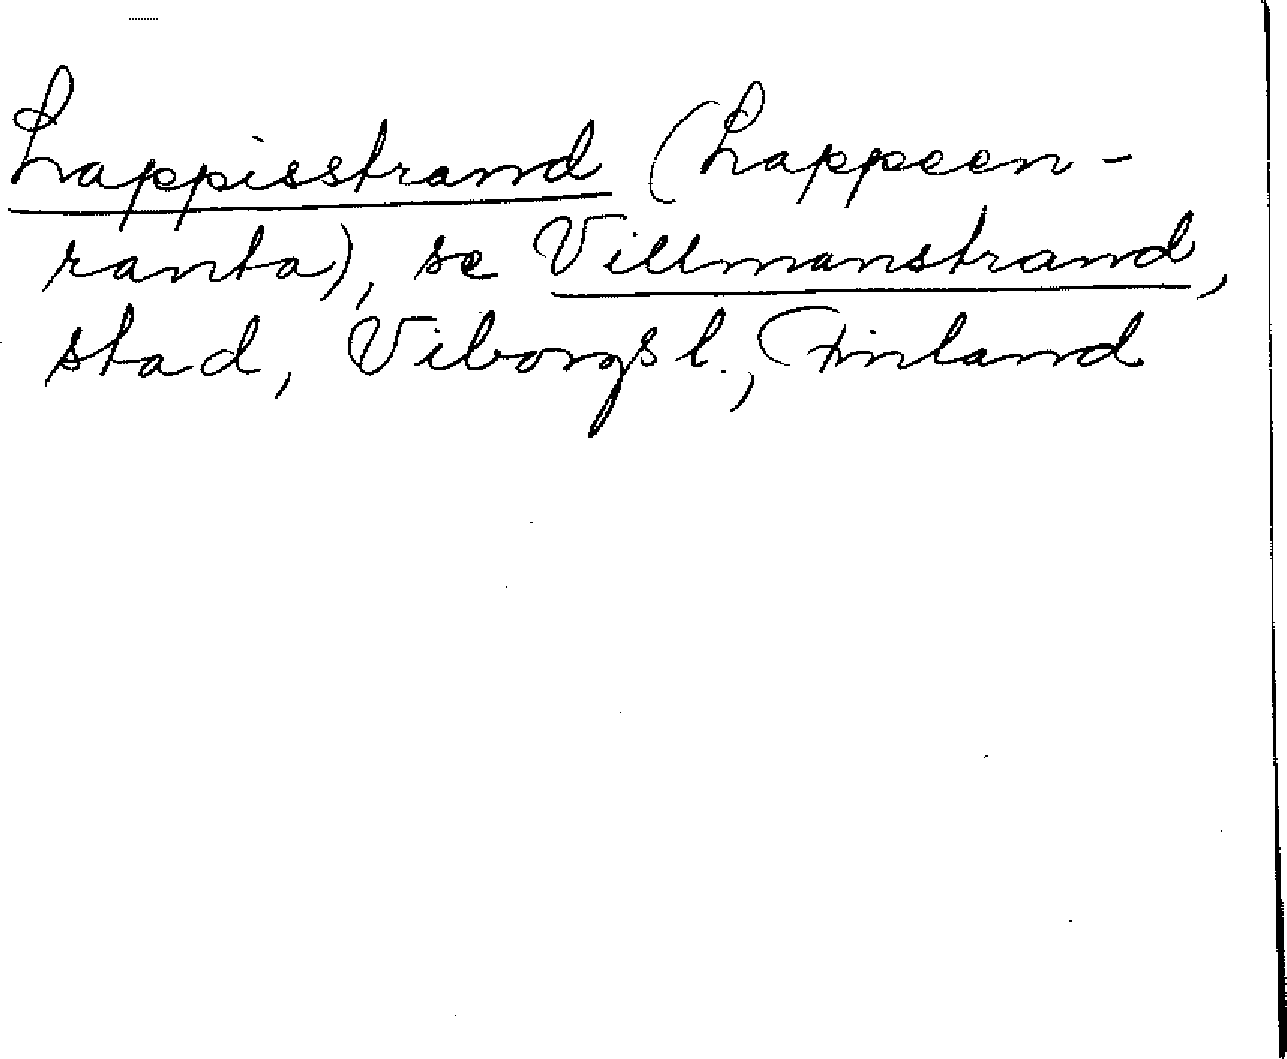 Lappisstrand (Lappeen-
ranta), se Villmanstrand,
stad, Viborgs l., Finland